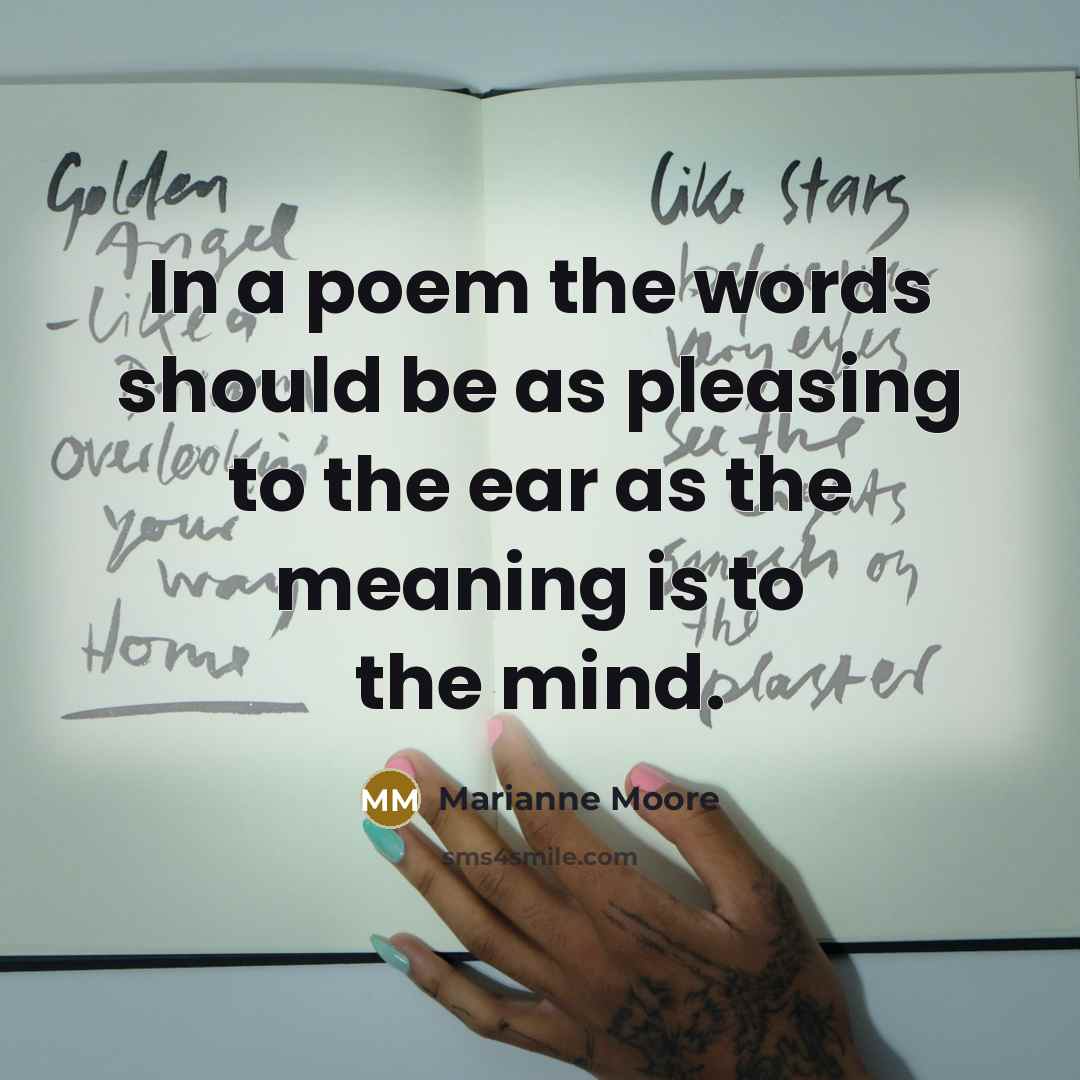 Golden
Angel
- Like a
overlookin'
your
way
Home
like stars
very eyes
See the
smash on
the
plaster
In a poem the words
should be as pleasing
to the ear as the
meaning is to
the mind.
MM Marianne Moore
sms4smile.com